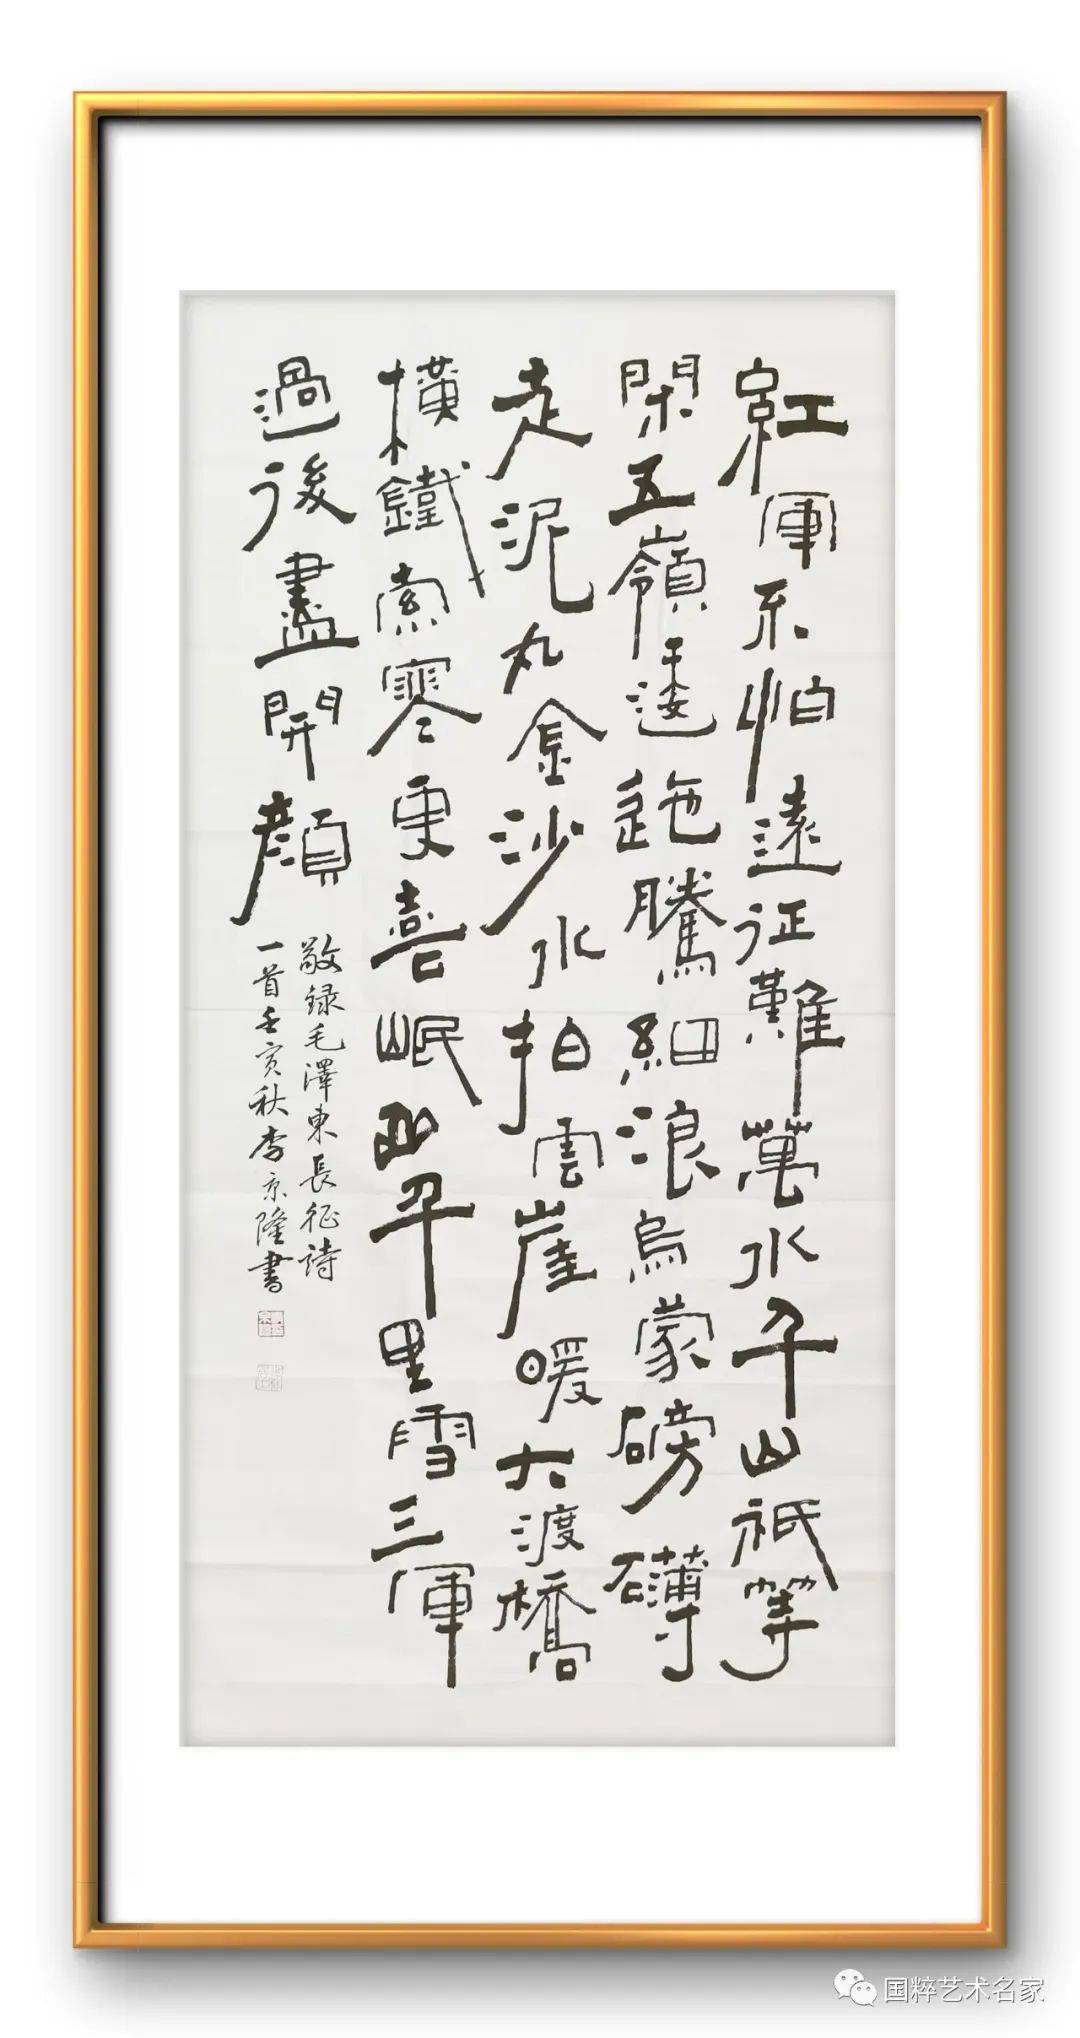 紅軍不怕遠征難萬水千山祇等
閑五嶺逶迤騰細浪烏蒙磅礴
走泥丸金沙水拍雲崖暖大渡橋
橫鐵索寒更喜岷山千里雪三軍
過後盡開顔
敬録毛澤東長征詩
一首壬寅秋李京隆書
国粹艺术名家